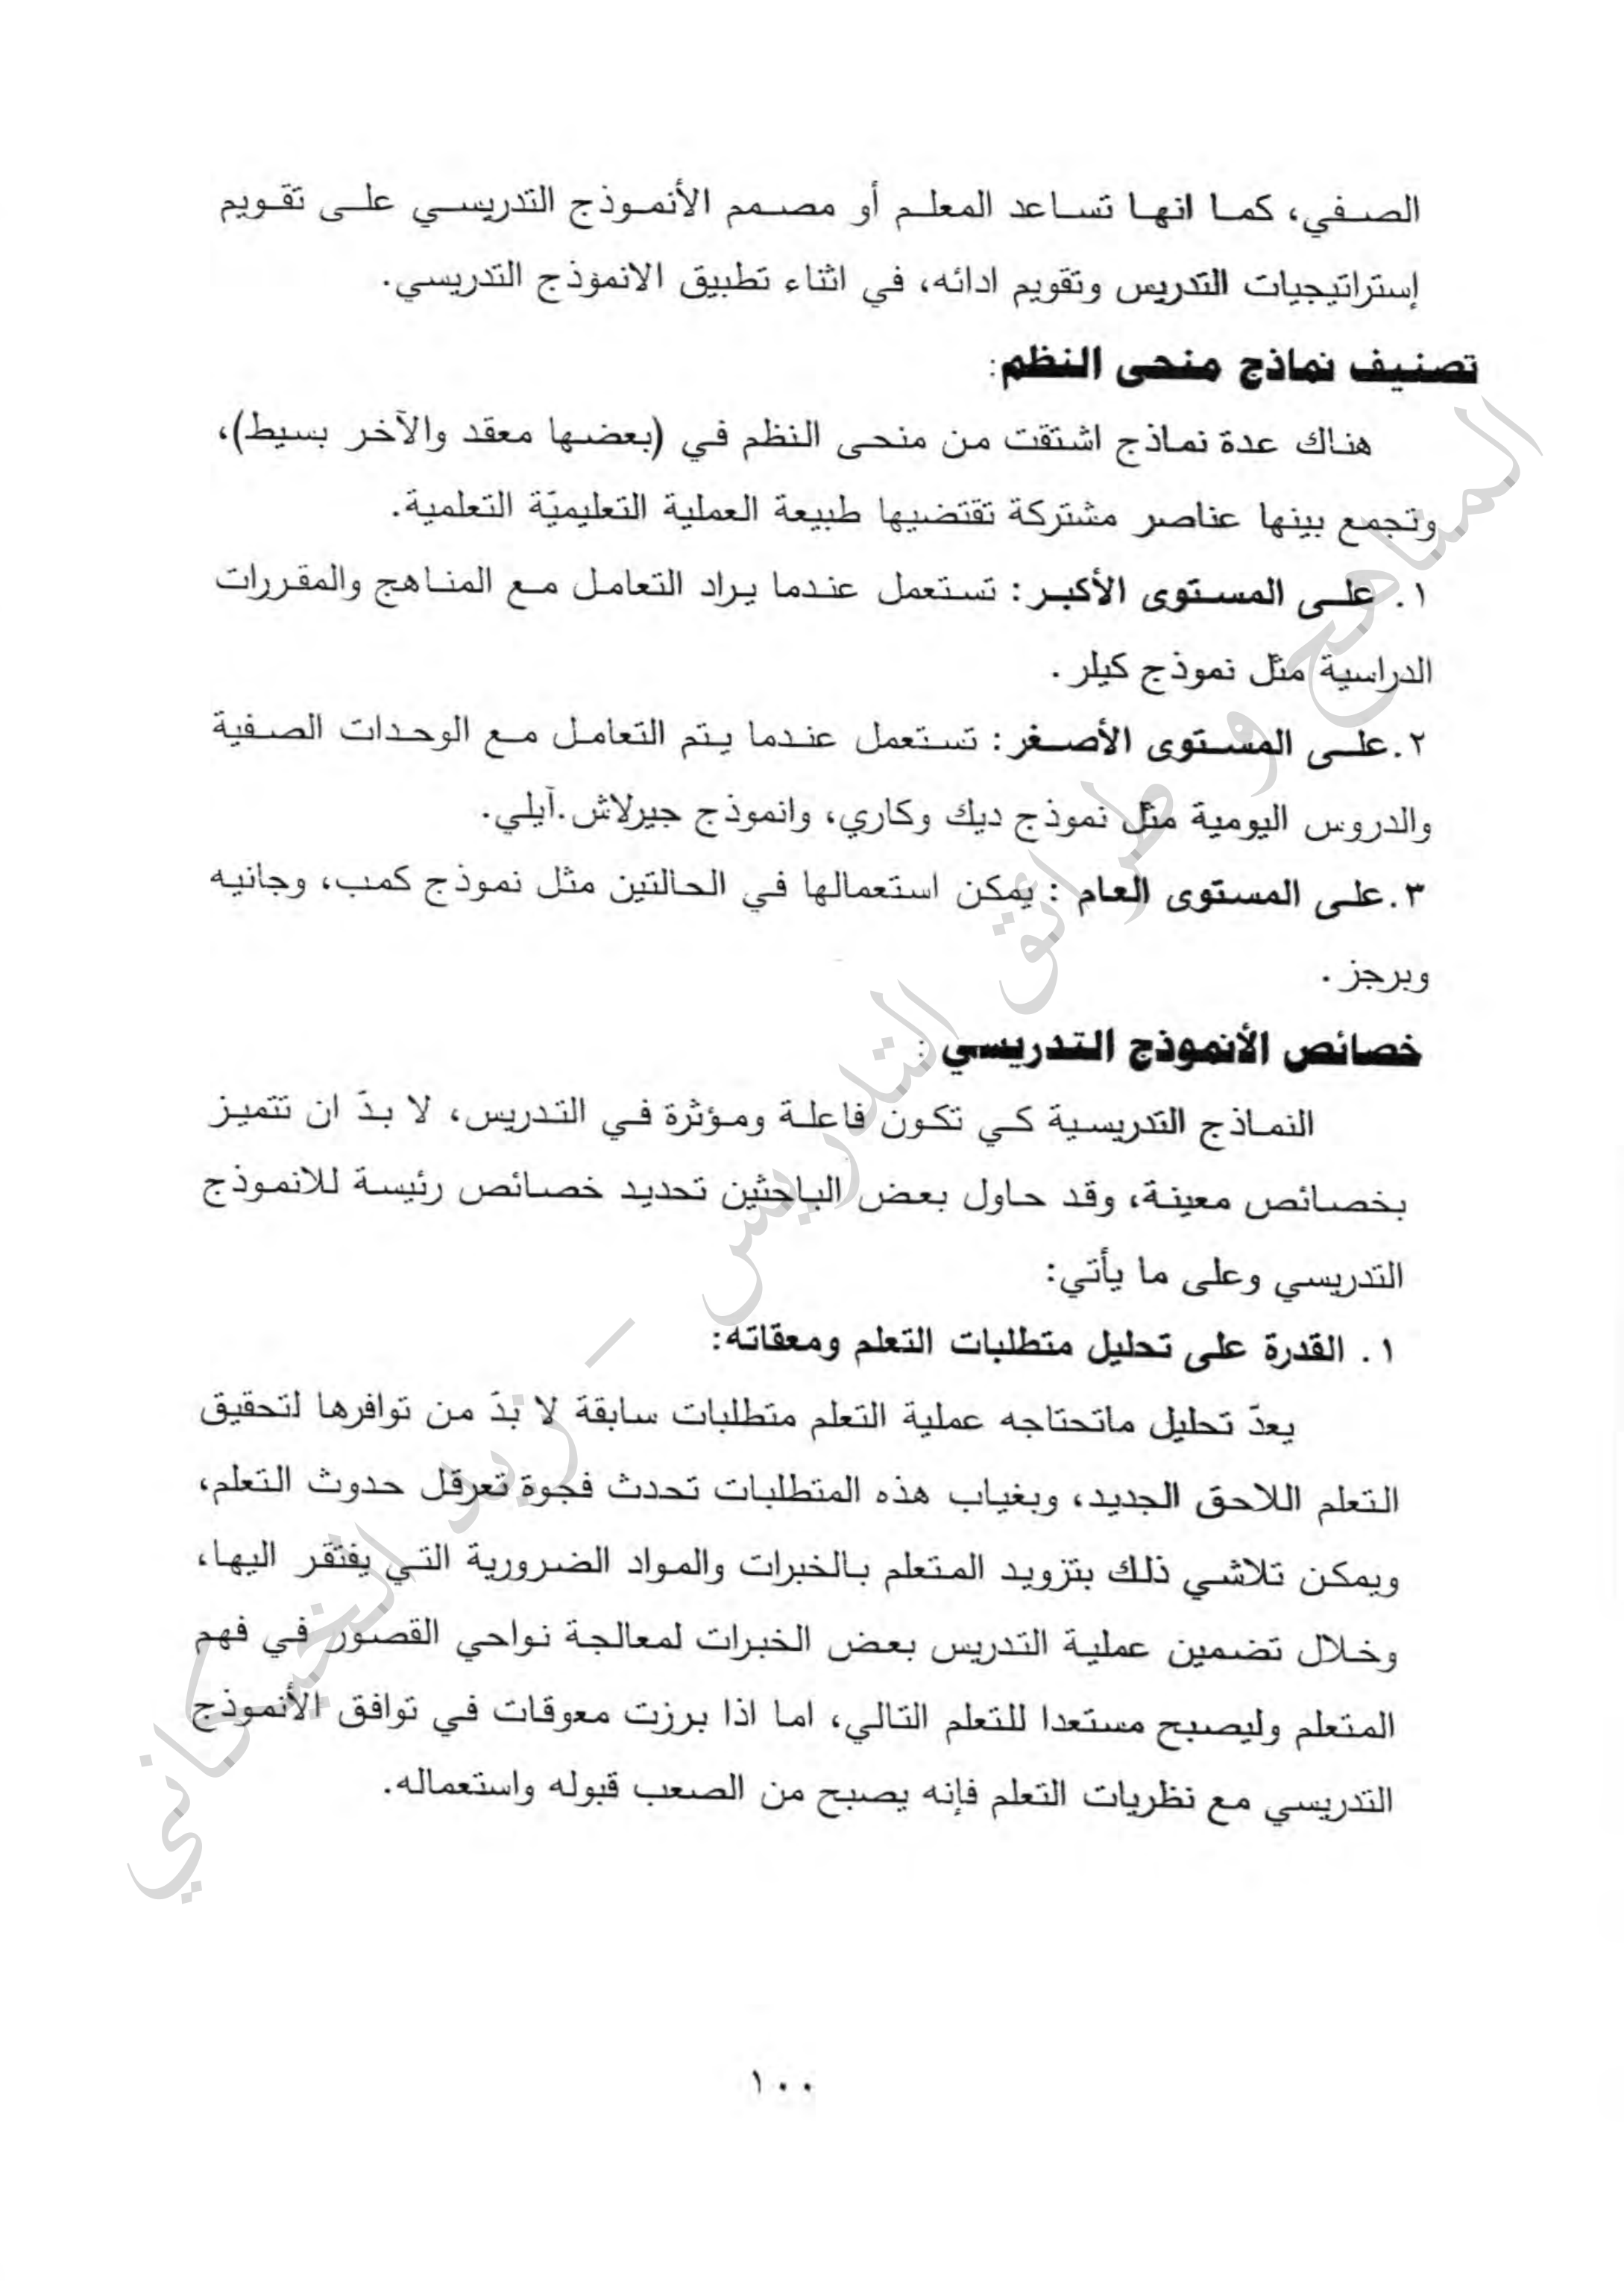 الصفي، كما انها تساعد المعلم أو مصمم الأنموذج التدريسي على تقويم
إستراتيجيات التدريس وتقويم ادائه، في اثناء تطبيق الانموذج التدريسي.
تصنيف نماذج منحى النظم:
هناك عدة نماذج اشتقت من منحى النظم في (بعضها معقد والآخر بسيط)،
وتجمع بينها عناصر مشتركة تقتضيها طبيعة العملية التعليميّة التعلمية.
١. على المستوى الأكبر: تستعمل عندما يراد التعامل مع المناهج والمقررات
الدراسية مثل نموذج كيلر.
٢.على المستوى الأصغر: تستعمل عندما يتم التعامل مع الوحدات الصفية
والدروس اليومية مثل نموذج ديك وكاري، وانموذج جيرلاش.آيلي.
٣.على المستوى العام : يمكن استعمالها في الحالتين مثل نموذج كمب، وجانيه
وبرجز.
خصائص الأنموذج التدريسي :
النماذج التدريسية كي تكون فاعلة ومؤثرة في التدريس، لا بدّ ان تتميز
بخصائص معينة، وقد حاول بعض الباحثين تحديد خصائص رئيسة للانموذج
التدريسي وعلى ما يأتي:
١. القدرة على تحليل متطلبات التعلم ومعقاته:
يعدّ تحليل ماتحتاجه عملية التعلم متطلبات سابقة لا بدّ من توافرها لتحقيق
التعلم اللاحق الجديد، وبغياب هذه المتطلبات تحدث فجوة تعرقل حدوث التعلم،
ويمكن تلاشي ذلك بتزويد المتعلم بالخبرات والمواد الضرورية التي يفتقر اليها،
وخلال تضمين عملية التدريس بعض الخبرات لمعالجة نواحي القصور في فهم
المتعلم وليصبح مستعدا للتعلم التالي، اما اذا برزت معوقات في توافق الأنموذج
التدريسي مع نظريات التعلم فإنه يصبح من الصعب قبوله واستعماله.
١٠٠
المناهج و طرائق التدريس – زيد الخيكاني